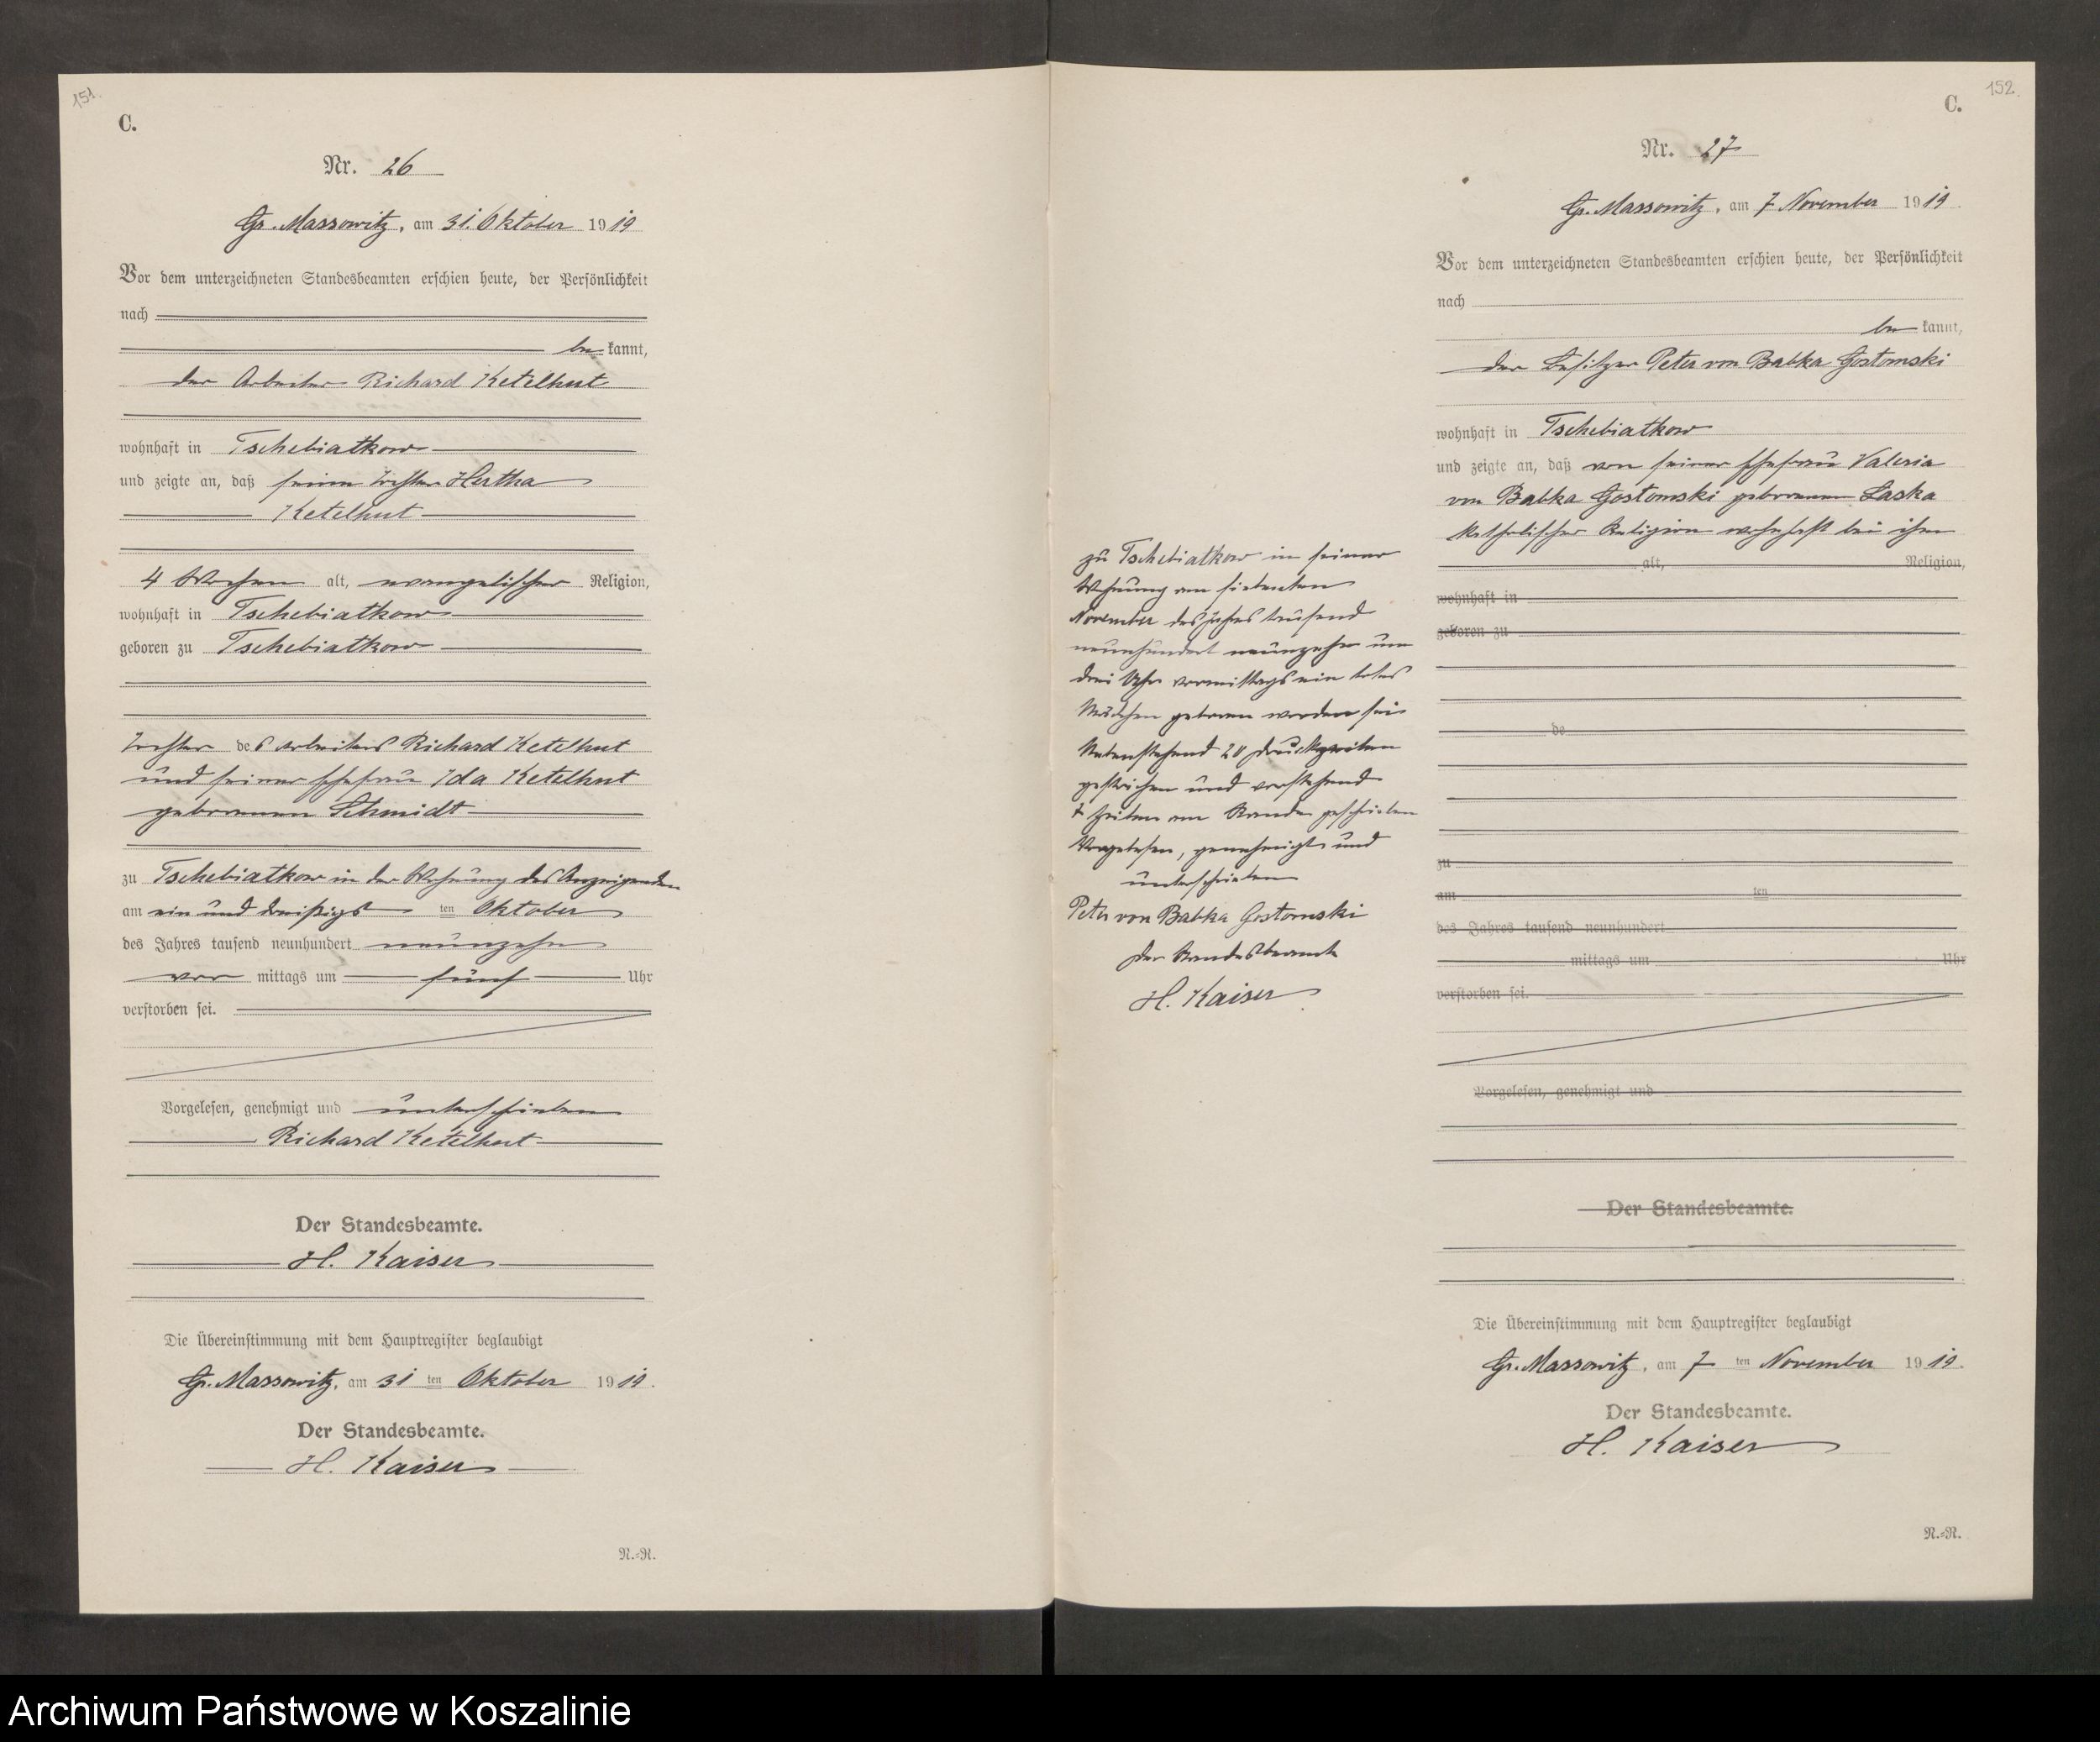 151.
C.
Nr. 26
Gr. Massowitz, am 31. Oktober 1919
Vor dem unterzeichneten Standesbeamten erschien heute, der Persönlichkeit
nach
be kannt,
der Arbeiter Richard Ketelhut
wohnhaft in Tschebiatkow
und zeigte an, daß seine Tochter Hertha
Ketelhut
4 Wochen alt, evangelischer Religion,
wohnhaft in Tschebiatkow
geboren zu Tschebiatkow
Tochter des Arbeiters Richard Ketelhut
und seiner Ehefrau Ida Ketelhut
geborenen Schmidt
zu Tschebiatkow in der Wohnung des Anzeigenden
am ein und dreißigsten Oktober
des Jahres tausend neunhundert neunzehn
vor mittags um fünf Uhr
verstorben sei.
Vorgelesen, genehmigt und unterschrieben
Richard Ketelhut
Der Standesbeamte.
H. Kaiser
Die Übereinstimmung mit dem Hauptregister beglaubigt
Gr. Massowitz, am 31 ten Oktober 1919.
Der Standesbeamte.
H. Kaiser
N.-R.
152.
C.
Nr. 27
Gr. Massowitz, am 7 November 1919.
Vor dem unterzeichneten Standesbeamten erschien heute, der Persönlichkeit
nach
be kannt,
der Besitzer Peter von Babka Gostomski
wohnhaft in Tschebiatkow
und zeigte an, daß von seiner Ehefrau Valeria
von Babka Gostomski geborenen Laska
katholischer Religion wohnhaft bei ihm
alt, Religion,
wohnhaft in
geboren zu
de
zu
am ten
des Jahres tausend neunhundert
mittags um Uhr
verstorben sei.
Vorgelesen, genehmigt und
Der Standesbeamte.
zu Tschebiatkow in seiner
Wohnung am siebenten
November des Jahres tausend
neunhundert neunzehn um
drei Uhr vormittags ein totes
Mädchen geboren worden sei
Nebenstehend 20 Druckzeilen
gestrichen und vorstehend
7 Zeilen am Rande geschrieben
Vorgelesen, genehmigt und
unterschrieben
Peter von Babka Gostomski
Der Standesbeamte
H. Kaiser
Die Übereinstimmung mit dem Hauptregister beglaubigt
Gr. Massowitz, am 7 ten November 1919.
Der Standesbeamte.
H. Kaiser
N.-R.
Archiwum Państwowe w Koszalinie